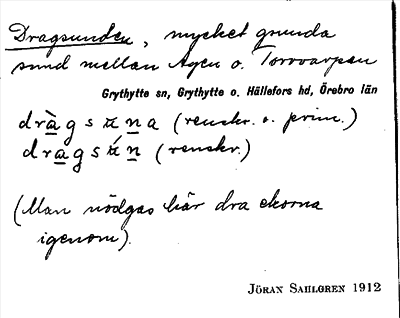 Dragsunden, mycket grunda
sund mellan Agen o. Torrvarpen
Grythytte sn, Grythytte o. Hällefors hd, Örebro län
dràgsu̵na (renskr. o. prim.)
dragsú̵n (renskr.)
(Man nödgas här dra ekorna
igenom).
JÖRAN SAHLGREN 1912